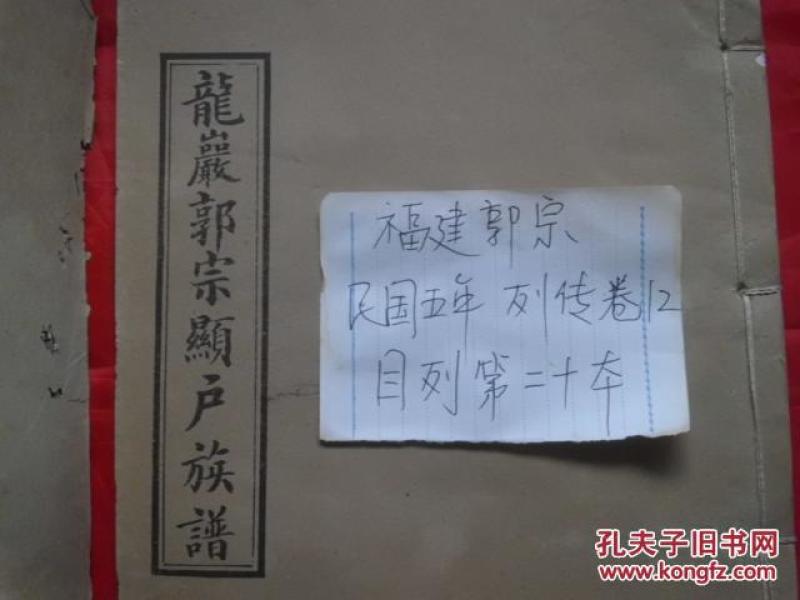 龍巖郭宗顯户族譜
福建郭宗
民国五年 列传卷12
目列第二十本
孔夫子旧书网
www.kongfz.com